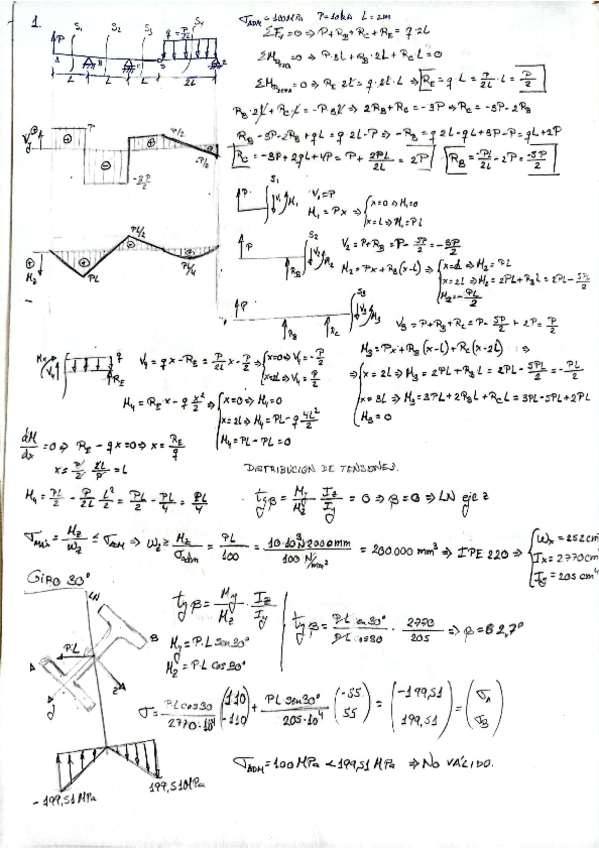 1.
σADM = 100MPa P=10kN L=2m
P S1 S2 S3 q = P/2L S4
A B C D E
L L L L 2L
ΣFV = 0 ⇒ P+RB+RC+RE = q·2L
ΣMDIZQ = 0 ⇒ P·3L + RB·2L + RC L = 0
ΣMDDCHA = 0 ⇒ RE 2L = q·2L·L ⇒ RE = q·L = P/2L · L = P/2
RB·2L + RC·L = -P·3L ⇒ 2RB+RC = -3P ⇒ RC = -3P-2RB
RB-3P-2RB+qL = q 2L-P ⇒ -RB = q 2L-qL+3P-P = qL+2P
RC = -3P+2qL+4P = P + 2PL/2L = 2P
RB = -PL/2L - 2P = -5P/2
Vy P P/2 -3P/2 -P/2
S1 P V1 M1
V1 = P
M1 = Px ⇒ { x=0 ⇒ M1=0
x=L ⇒ M1=PL
Mz PL PL/2 PL/4
P RB S2 V2 M2
V2 = P+RB = P - 5P/2 = -3P/2
M2 = Px+RB(x-L) ⇒ { x=L ⇒ M2=PL
x=2L ⇒ M2 = 2PL+RBL = 2PL - 5PL/2
M2 = -PL/2
P RB RC S3 V3 M3
V3 = P+RB+RC = P - 5P/2 + 2P = P/2
M3 = Px+RB(x-L)+RC(x-2L) ⇒
⇒ { x=2L ⇒ M3 = 2PL+RBL = 2PL - 5PL/2 = -PL/2
x=3L ⇒ M3 = 3PL+2RBL+RCL = 3PL-5PL+2PL
M3 = 0
M4 V4 q RE
V4 = qx-RE = P/2L x - P/2 ⇒ { x=0 ⇒ V4 = -P/2
x=2L ⇒ V4 = P/2
M4 = RE x - q x²/2 ⇒ { x=0 ⇒ M4=0
x=2L ⇒ M4 = PL-q 4L²/2
M4 = PL-PL = 0
dM/dx = 0 ⇒ RE-qx=0 ⇒ x = RE/q
x = P/2 · 2L/P = L
DISTRIBUCIÓN DE TENSIONES.
M4 = PL/2 - P/2L L²/2 = PL/2 - PL/4 = PL/4
tg β = My/Mz Iz/Iy = 0 ⇒ β=0 ⇒ LN eje z
σmáx = Mz/Wz ≤ σADM ⇒ Wz ≥ Mz/σadm = PL/100 = 10·10³N 2000mm / 100 N/mm² = 200.000 mm³ ⇒ IPE 220 ⇒ { Wx = 252 cm
Ix = 2770 cm
Iy = 205 cm⁴
GIRO 30°
LN PL A B y z
tg β = My/Mz · Iz/Iy
My = P·L sen30°
Mz = P·L cos30°
tg β = P·L sen30°/P·L cos30 · 2770/205 ⇒ β = 82,7°
σ = PLcos30/2770·10⁴ (110 -110) + PLsen30°/205·10⁴ (-55 55) = (-199,51 199,51) = (σA σB)
-199,51 MPa 199,51MPa
σADM = 100MPa < 199,51 MPa ⇒ NO VÁLIDO.